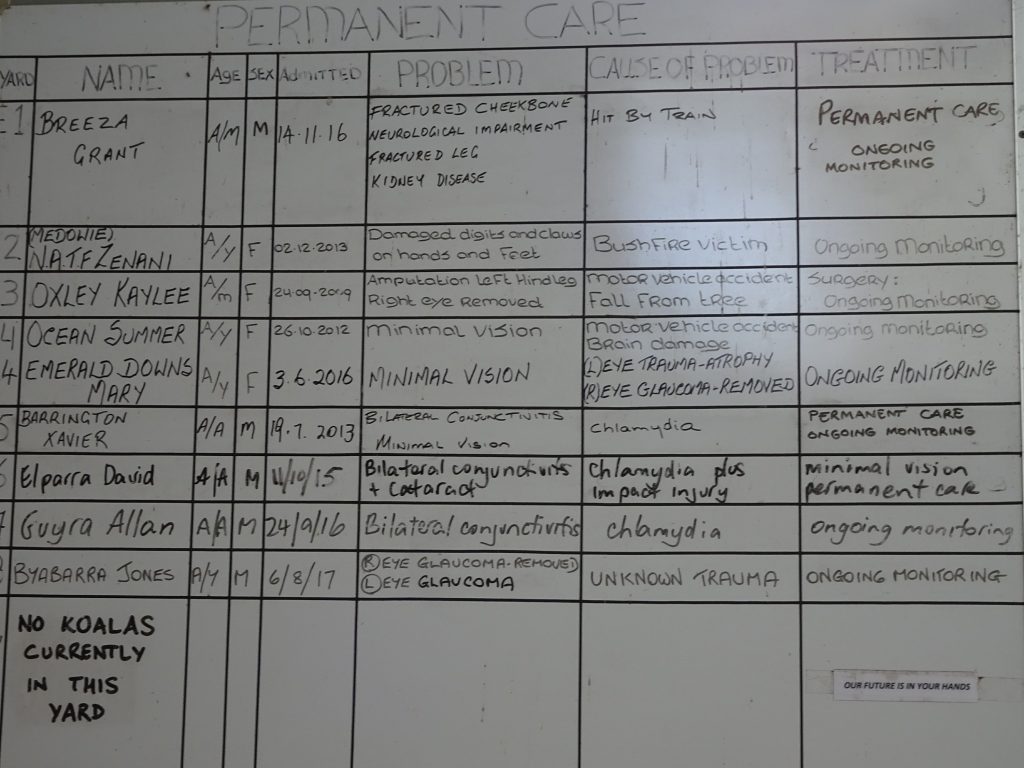 PERMANENT CARE
YARD NAME AGE SEX ADMITTED PROBLEM CAUSE OF PROBLEM TREATMENT
1 BREEZA GRANT A/M M 14.11.16 FRACTURED CHEEKBONE HIT BY TRAIN PERMANENT CARE
NEUROLOGICAL IMPAIRMENT ONGOING
FRACTURED LEG MONITORING
KIDNEY DISEASE
2 (MEDOWIE) A/Y F 02.12.2013 Damaged digits and claws Bushfire victim Ongoing monitoring
N.A.T.F ZENANI on hands and Feet
3 OXLEY KAYLEE A/m F Amputation left Hindleg motor vehicle accident Surgery:
Right eye Removed Fall From tree Ongoing Monitoring
4 OCEAN SUMMER A/Y F 26.10.2012 minimal vision motor vehicle accident Ongoing monitoring
Brain damage
4 EMERALD DOWNS A/Y F 3.6.2016 MINIMAL VISION (L) EYE TRAUMA-ATROPHY ONGOING MONITORING
MARY (R) EYE GLAUCOMA-REMOVED
5 BARRINGTON A/A M 19.7.2013 BILATERAL CONJUNCTIVITIS Chlamydia PERMANENT CARE
XAVIER MINIMAL VISION ONGOING MONITORING
Elparra David A/A M 4/10/15 Bilateral conjunctivits Chlamydia plus minimal vision
+ Cataract impact injury permanent care
Guyra Allan A/A M 24/9/16 Bilateral conjunctivitis chlamydia ongoing monitoring
BYABARRA JONES A/Y M 6/8/17 (R) EYE GLAUCOMA-REMOVED UNKNOWN TRAUMA ONGOING MONITORING
(L) EYE GLAUCOMA
NO KOALAS
CURRENTLY
IN THIS
YARD
OUR FUTURE IS IN YOUR HANDS